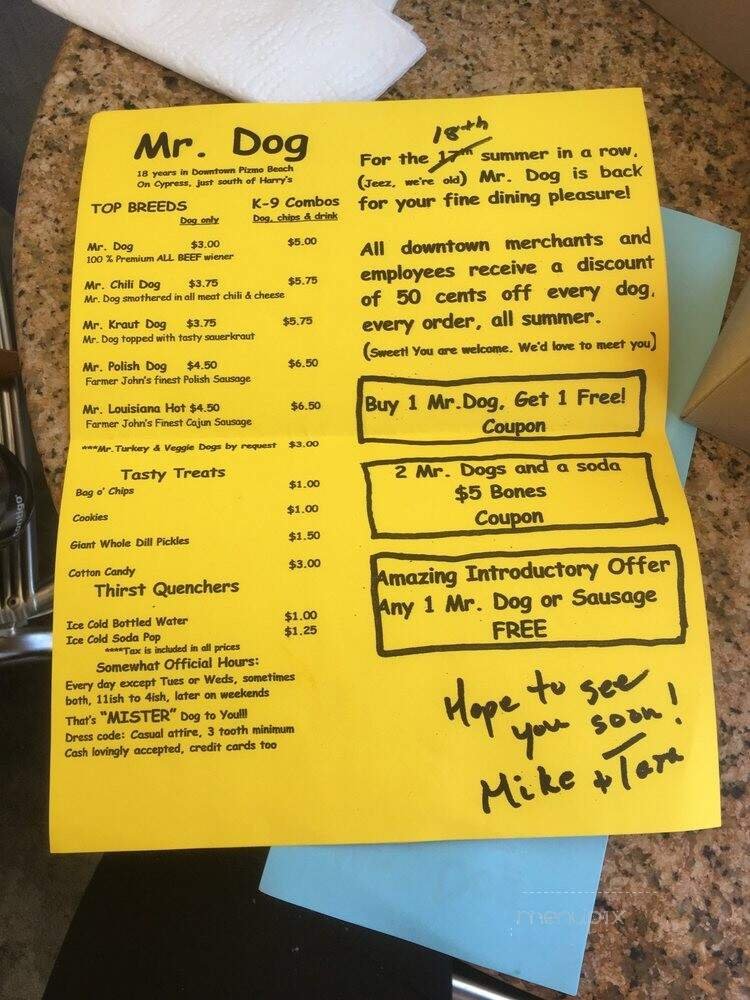 Mr. Dog
18 years in Downtown Pizmo Beach
On Cypress, just south of Harry's
TOP BREEDS K-9 Combos
Dog only Dog, chips & drink
Mr. Dog $3.00 $5.00
100 % Premium ALL BEEF wiener
Mr. Chili Dog $3.75 $5.75
Mr. Dog smothered in all meat chili & cheese
Mr. Kraut Dog $3.75 $5.75
Mr. Dog topped with tasty sauerkraut
Mr. Polish Dog $4.50 $6.50
Farmer John's finest Polish Sausage
Mr. Louisiana Hot $4.50 $6.50
Farmer John's Finest Cajun Sausage
***Mr. Turkey & Veggie Dogs by request $3.00
Tasty Treats
Bag o' Chips $1.00
Cookies $1.00
Giant Whole Dill Pickles $1.50
Cotton Candy $3.00
Thirst Quenchers
Ice Cold Bottled Water $1.00
Ice Cold Soda Pop $1.25
****Tax is included in all prices
Somewhat Official Hours:
Every day except Tues or Weds, sometimes
both, 11ish to 4ish, later on weekends
That's "MISTER" Dog to You!!!
Dress code: Casual attire, 3 tooth minimum
Cash lovingly accepted, credit cards too
18th
For the 17th summer in a row,
(Jeez, we're old) Mr. Dog is back
for your fine dining pleasure!
All downtown merchants and
employees receive a discount
of 50 cents off every dog,
every order, all summer.
(Sweet! You are welcome. We'd love to meet you)
Buy 1 Mr.Dog, Get 1 Free!
Coupon
2 Mr. Dogs and a soda
$5 Bones
Coupon
Amazing Introductory Offer
Any 1 Mr. Dog or Sausage
FREE
Hope to see
you soon!
Mike + Tara
contigo
menupix